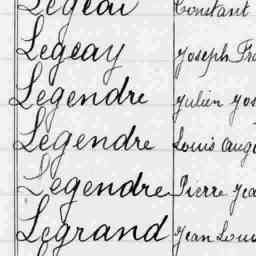 Legeai Constant
Legeay Joseph
Legendre Julien
Legendre Louis
Legendre Pierre
Legrand Jean Louis